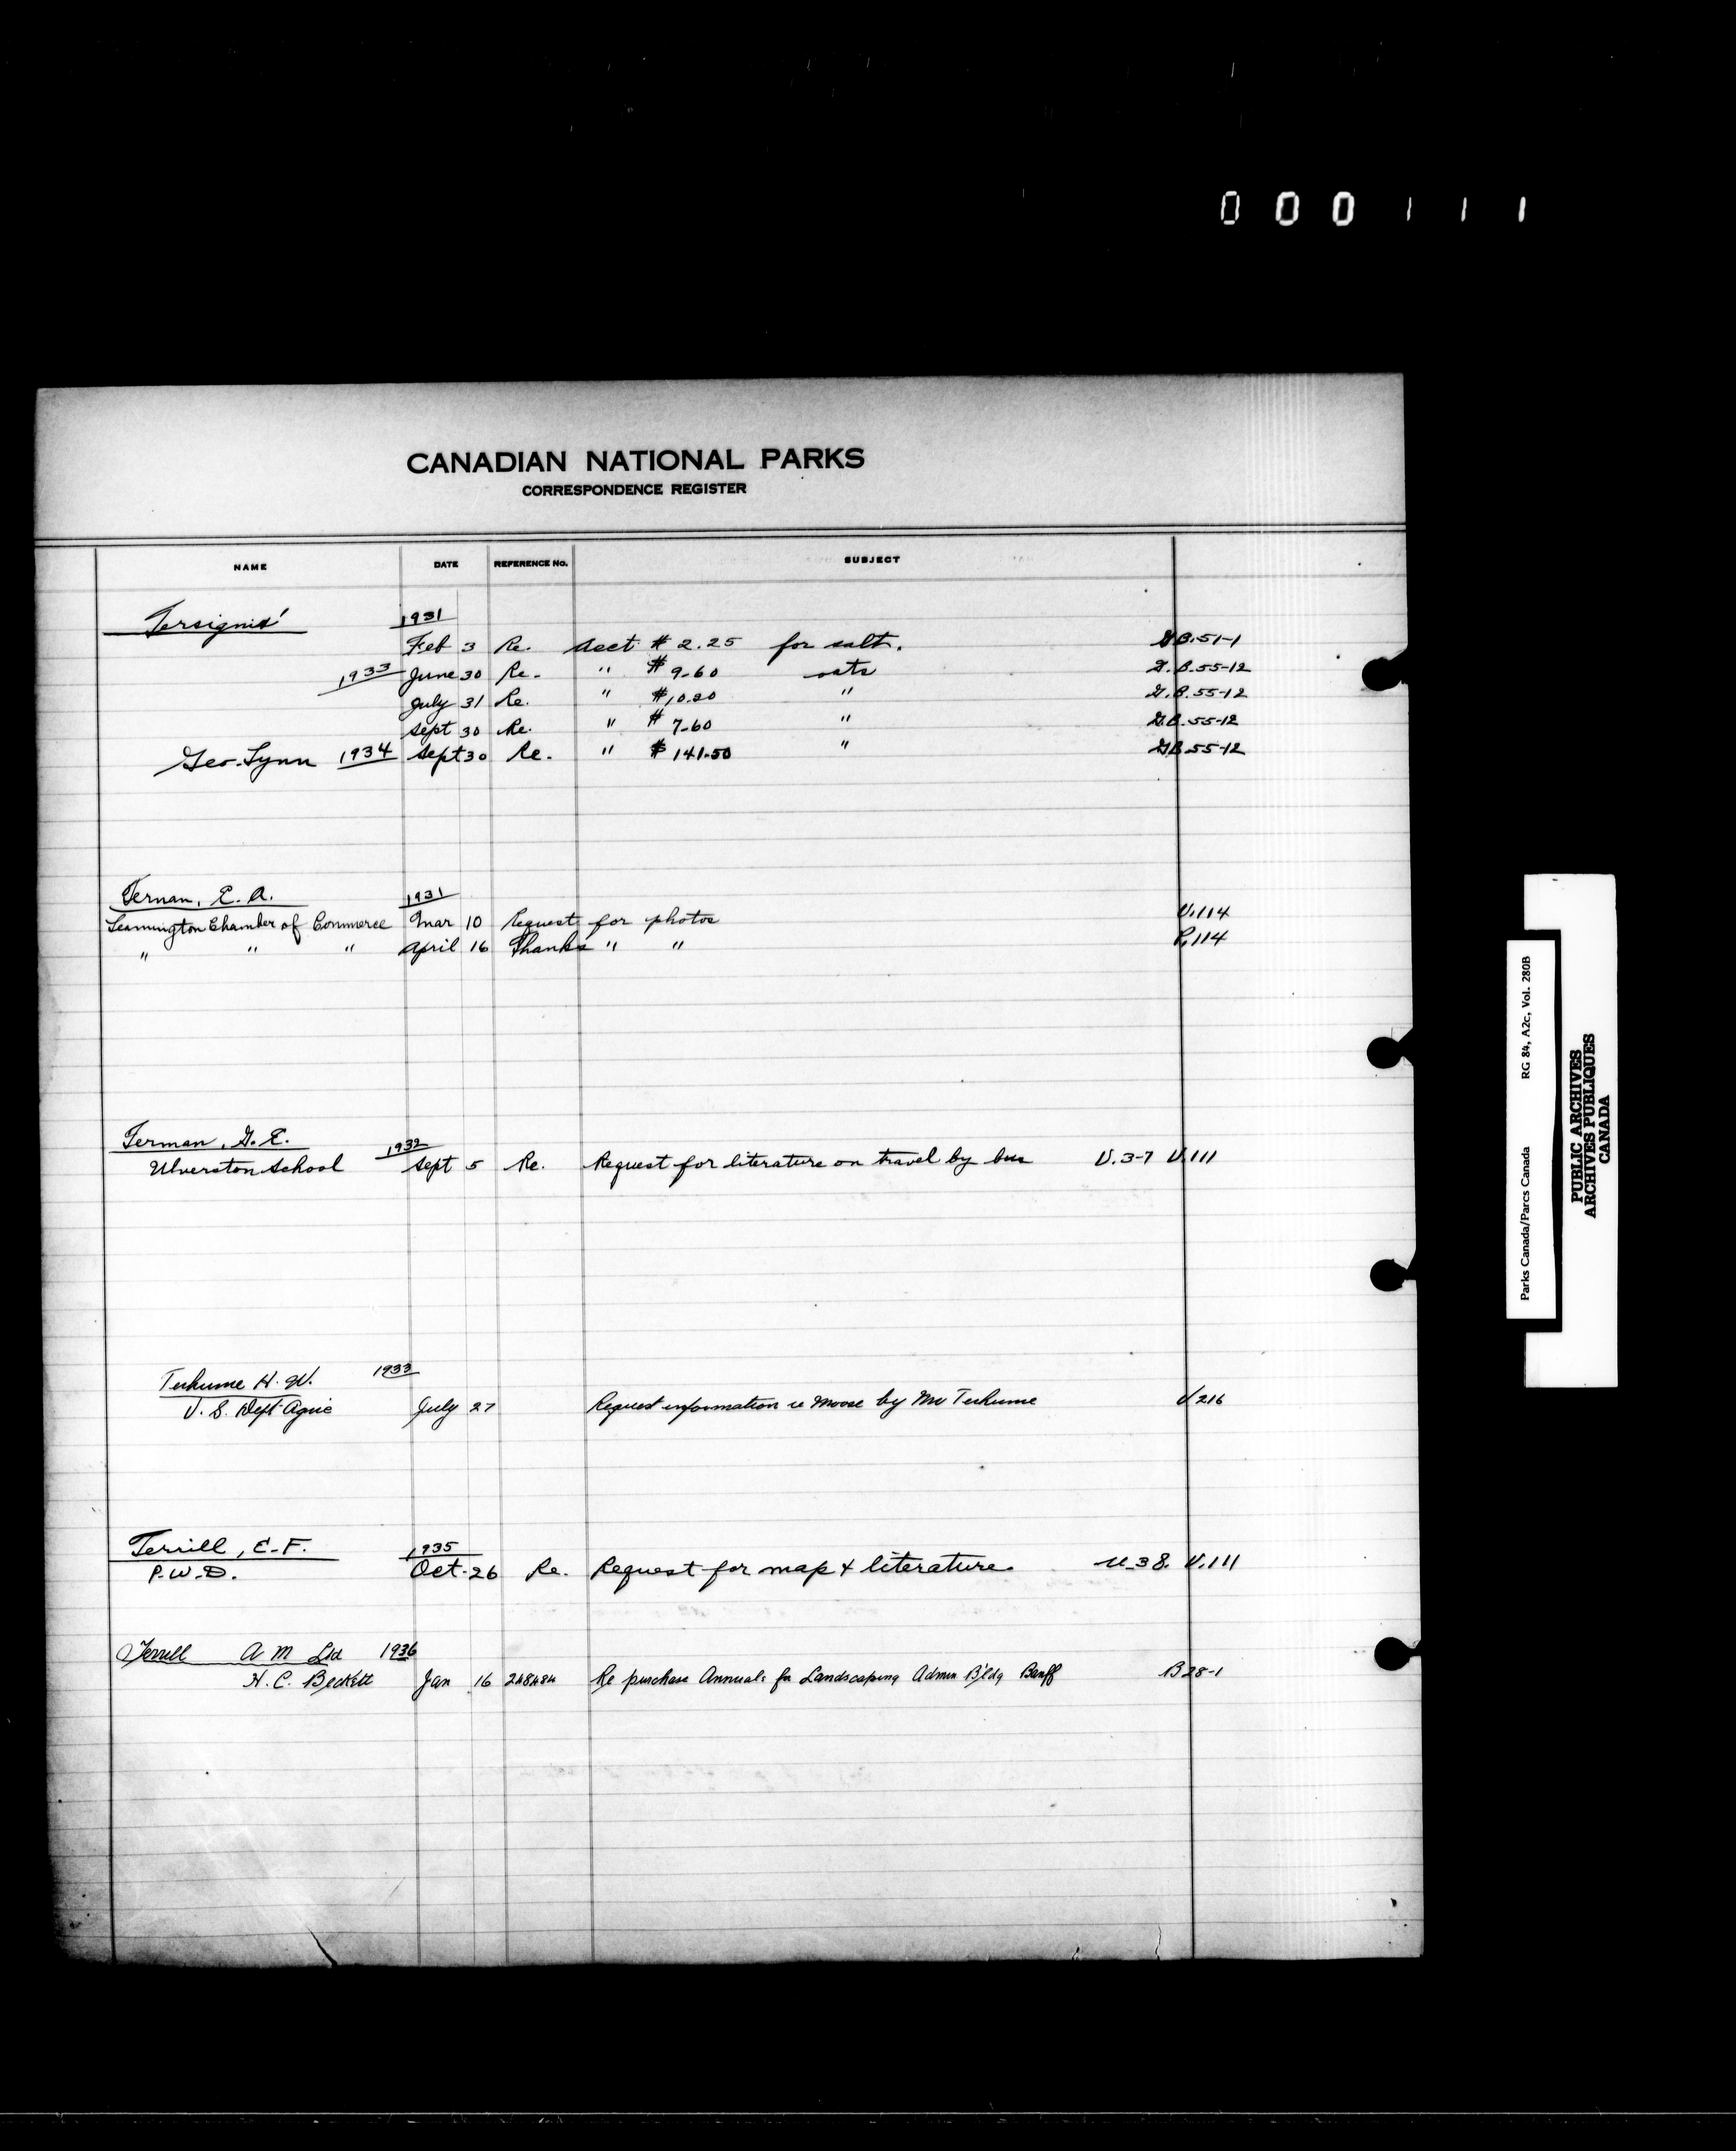 000111
CANADIAN NATIONAL PARKS
CORRESPONDENCE REGISTER
NAME DATE REFERENCE No. SUBJECT
1931
Feb 3 Re. Acct # 2.25 for salt. G.B.51-1
1933 June 30 Re. " # 9.60 oats G.B.55-12
July 31 Re. " # 10.20 " G.B.55-12
Sept 30 Re. " # 7.60 " G.B.55-12
Geo. Lynn 1934 Sept 30 Re. " $ 141.50 " G.B.55-12
Ternan, E. A. 1931
Leamington Chamber of Commerce Mar 10 Request for photos U.114
" " " April 16 Thanks " " 114
Terman, G. E. 1932
Ulverston School Sept 5 Re. Request for literature on travel by bus U.3-7 U.111
H. W. 1933
U. S. Dept Agric July 27 Request information re Moose by Mr U 216
Terrill, E. F. 1935
P.W.D. Oct. 26 Re. Request for map & literature. U.38. U.111
Terrill A M Ltd 1936
H. C. Beckett Jan 16 248484 Re purchase Annuals for Landscaping Admin B'ldg Banff B28-1
Parks Canada/Parcs Canada RG 84, A2c, Vol. 280B
PUBLIC ARCHIVES
ARCHIVES PUBLIQUES
CANADA